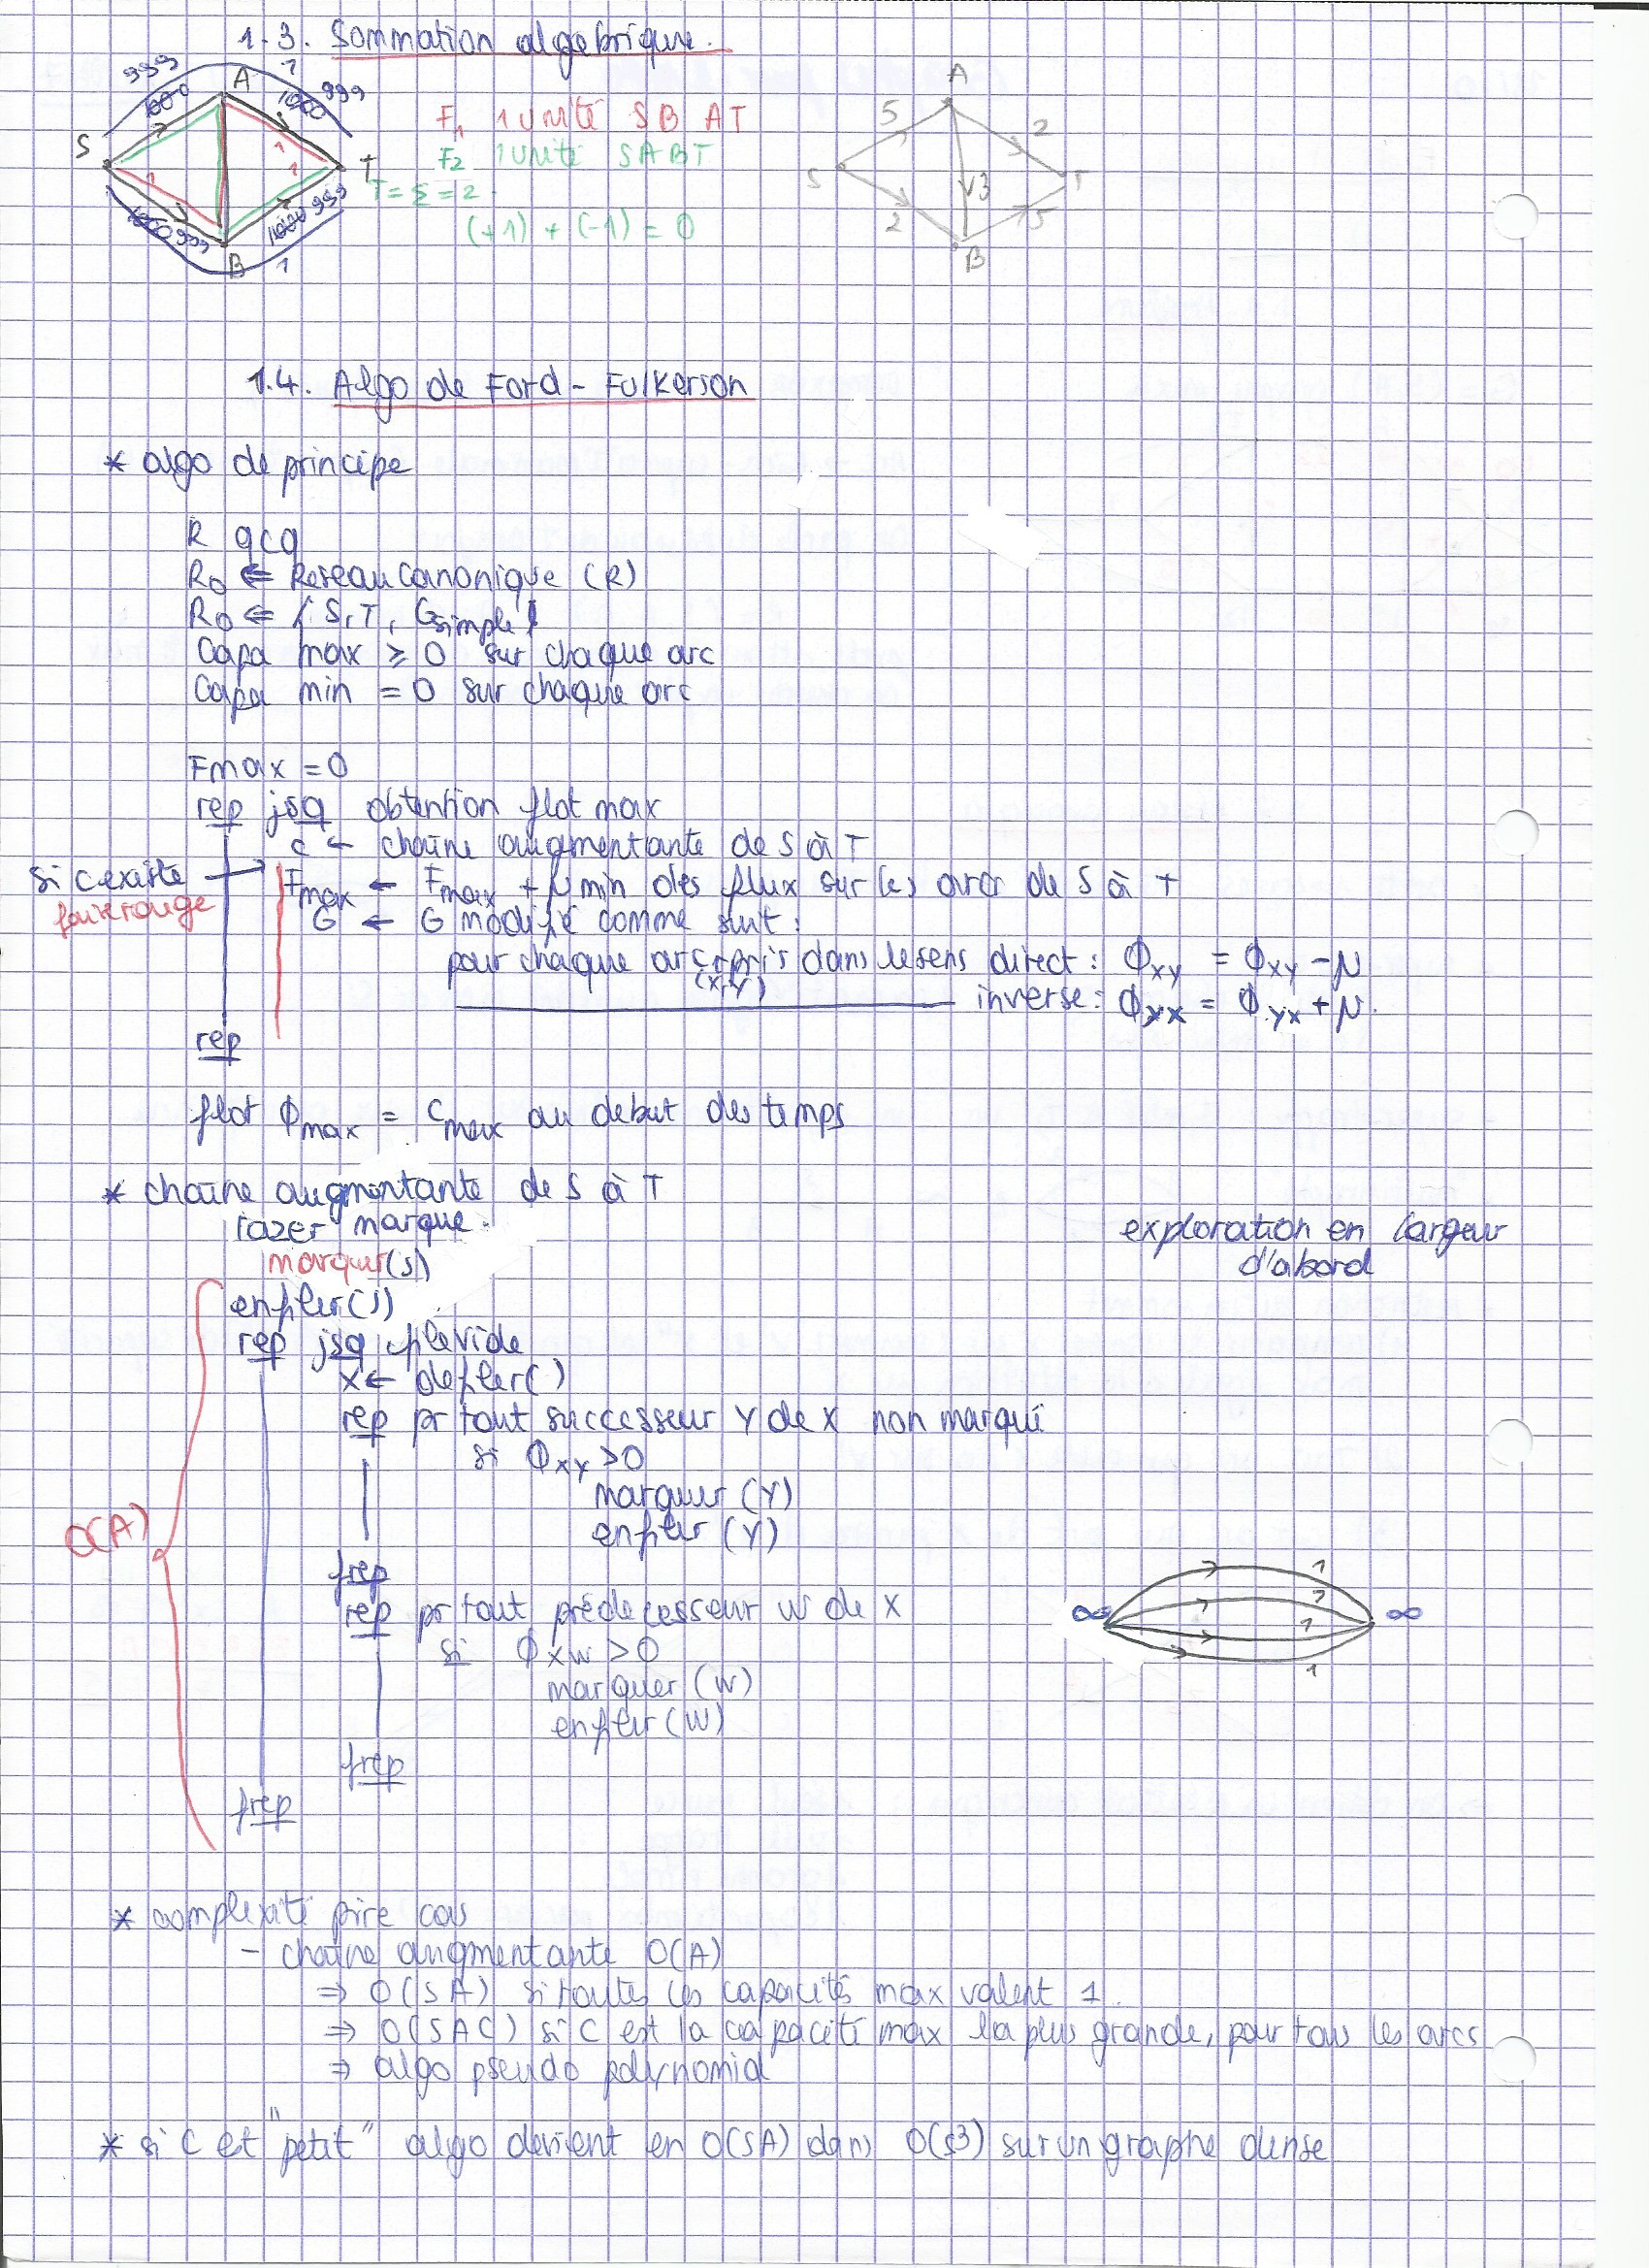 1.3. Sommation algebrique.
999
1000
A
1
1000 999
S
1
1
1
T
1000 999
1000 999
B
1
F1 1 unité SB AT
F2 1 unité SABT
T = Σ = 2
(+1) + (-1) = 0
A
5
2
S
3
T
2
5
B
1.4. Algo de Ford - Fulkerson
* algo de principe
R qcq
R0 ⇐ Reseau canonique (R)
R0 ⇐ { S, T, Gsimple }
Capa max ≥ 0 sur chaque arc
Capa min = 0 sur chaque arc
Fmax = 0
rep jsq obtention flot max
c ← chaîne augmentante de S à T
si c existe
faire rouge
Fmax ← Fmax + μ min des flux sur les arcs de S à T
G ← G modifié comme suit :
pour chaque arc pris dans le sens direct : ϕxy = ϕxy - μ
(x,y)
inverse : ϕyx = ϕyx + μ.
rep
flot ϕmax = cmax au debut des temps
* chaîne augmentante de S à T
razer marque.
marquer(s)
exploration en largeur
d'abord
enfiler(s)
rep jsq filevide
x ← defiler()
rep pr tout successeur Y de X non marqué
si ϕxy > 0
marquer (Y)
enfiler (Y)
O(A)
frep
rep pr tout prédecesseur W de X
si ϕxw > 0
marquer (W)
enfiler (W)
frep
frep
∞
1
1
1
1
∞
* complexité pire cas
- chaîne augmentante O(A)
⇒ O(SA) si toutes les capacités max valent 1.
⇒ O(SAC) si C est la capacité max la plus grande, pour tous les arcs
⇒ algo pseudo polynomial
* si C et "petit" algo devient en O(SA) dans O(S³) sur un graphe dense